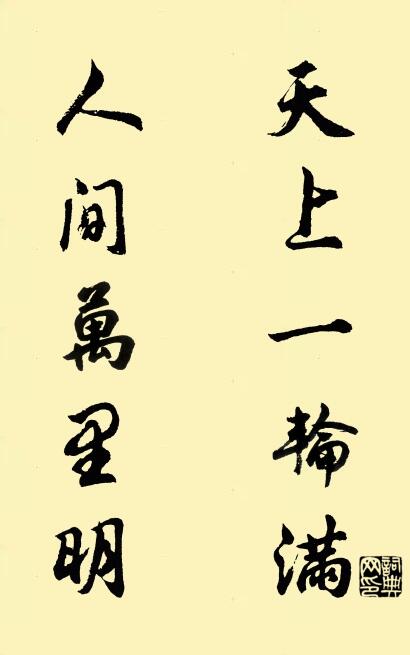 天上一輪滿
人间萬里明
詞典网印